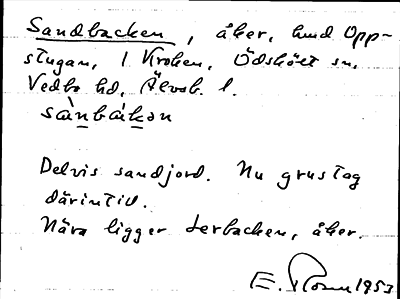 Sandbacken, åker, hmd Opp-
stugan, 1 Kroken, Ödskölt sn,
Vedbo hd, Älvsb. l.
sànbákən
Delvis sandjord. Nu grustag
därintill.
Nära ligger Lerbacken, åker.
E. Rosén 1953